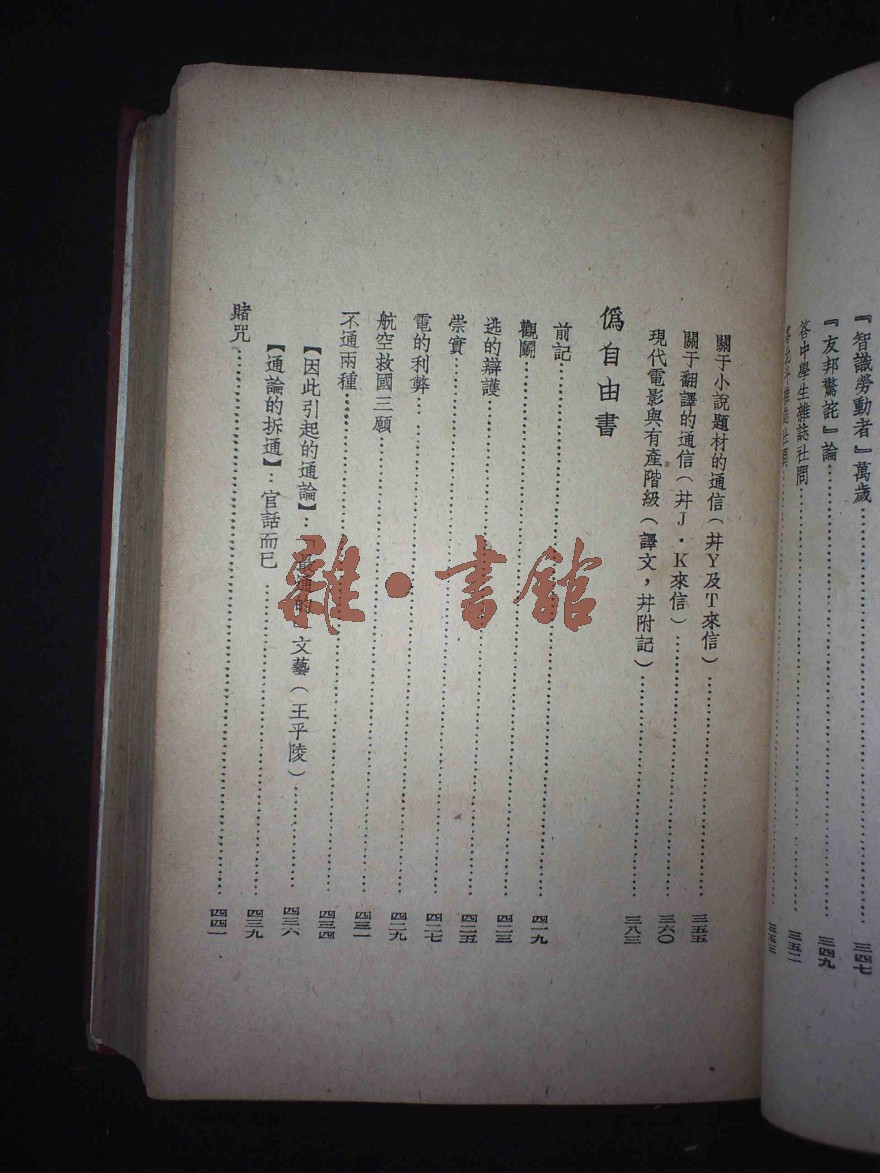 『智識勞動者』萬歲……三四七
『友邦驚詫』論……三四九
答中學生雜誌社問……三五二
雜誌社問……三五三
關于小說題材的通信（并Y及T來信）……三五五
關于翻譯的通信（并J·K來信）……三六〇
現代電影與有產階級（譯文，并附記）……三八三
僞自由書
前記……四一九
觀鬭……四二三
逃的辯護……四二五
崇實……四二七
電的利弊……四二九
航空救國三願……四三一
不通兩種……四三四
【因此引起的通論】：「最通的」文藝（王平陵）……四三六
【通論的拆通】：官話而已……四三九
賭咒……四四一
雜·書館